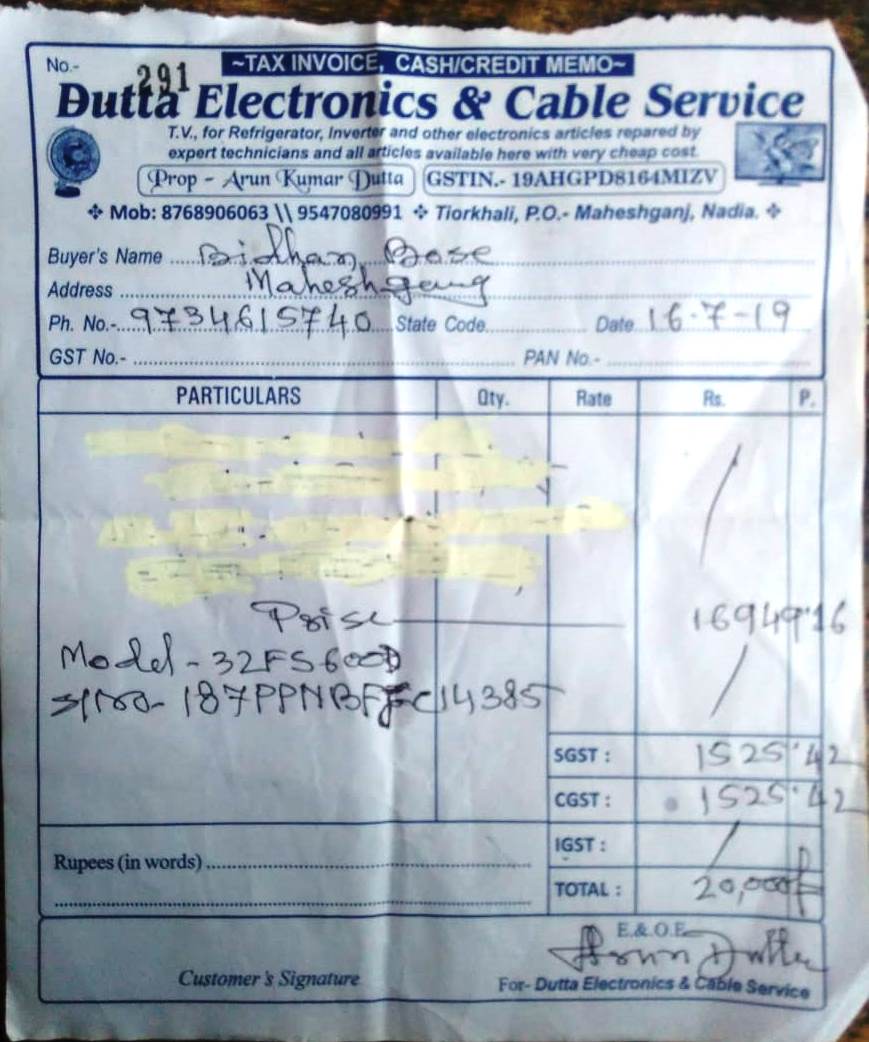 No.- 291 ~TAX INVOICE, CASH/CREDIT MEMO~
Dutta Electronics & Cable Service
T.V., for Refrigerator, Inverter and other electronics articles repared by
expert technicians and all articles available here with very cheap cost.
Prop - Arun Kumar Dutta GSTIN.- 19AHGPD8164MIZV
Mob: 8768906063 \\ 9547080991 Tiorkhali, P.O.- Maheshganj, Nadia.
Buyer's Name Bidhan Bose
Address Maheshgang
Ph. No.- 9734615740 State Code Date 16-7-19
GST No.- PAN No.-
PARTICULARS Qty. Rate Rs. P.
Prise 16949.16
Model-32FS600D
S/No- 187PPNBFFC14385
SGST : 1525.42
CGST : 1525.42
IGST :
Rupees (in words)
TOTAL : 20,000/-
E.& O.E.
Arun Dutta
Customer's Signature For- Dutta Electronics & Cable Service